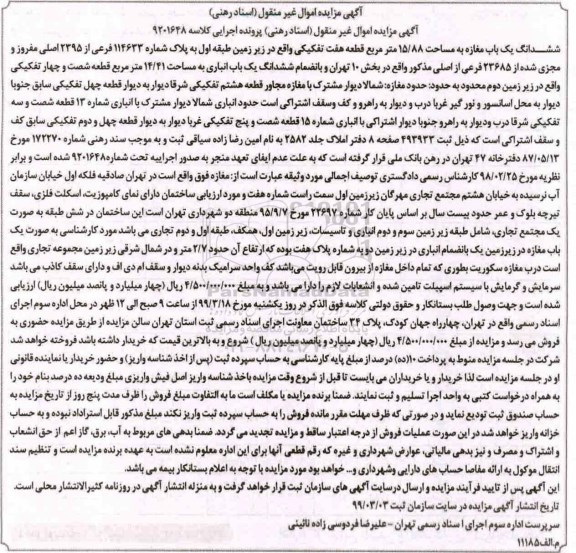 آگهی مزایده اموال غیر منقول (اسناد رهنی)
آگهی مزایده اموال غیر منقول (اسناد رهنی) پرونده اجرایی کلاسه ۹۲۰۱۶۴۸
ششدانگ یک باب مغازه به مساحت ۱۵/۸۸ متر مربع قطعه هفت تفکیکی واقع در زیر زمین طبقه اول به پلاک شماره ۱۱۴۶۳۳ فرعی از ۲۳۹۵ اصلی مفروز و
مجزی شده از ۲۳۶۸۵ فرعی از اصلی مذکور واقع در بخش ۱۰ تهران و بانضمام ششدانگ یک باب انباری به مساحت ۱۴/۴۱ متر مربع قطعه شصت و چهار تفکیکی
واقع در زیر زمین دوم محدود به حدود: حدود مغازه: شمالا دیوار مشترک با مغازه مجاور قطعه هشتم تفکیکی شرقا دیوار به دیوار قطعه چهل تفکیکی سابق جنوبا
دیوار به محل اسانسور و نور گیر غربا درب و دیوار به راهرو و کف وسقف اشتراکی است حدود انباری شمالا دیوار مشترک با انباری شماره ۱۳ قطعه شصت و سه
تفکیکی شرقا درب ودیوار به راهرو جنوبا دیوار اشتراکی با انباری شماره ۱۵ قطعه شصت و پنج تفکیکی غربا دیوار به دیوار قطعه چهل و دوم تفکیکی سابق کف
و سقف اشتراکی است که ذیل ثبت ۴۹۳۹۳۳ صفحه ۸ دفتر املاک جلد ۲۵۸۲ به نام امین رضا زاده سیاقی ثبت و به موجب سند رهنی شماره ۱۷۲۲۷۰ مورخ
۸۷/۰۵/۱۳ دفترخانه ۴۷ تهران در رهن بانک ملی قرار گرفته است که به علت عدم ایفای تعهد منجر به صدور اجراییه تحت شماره ۹۲۰۱۶۴۸ شده است و برابر
نظریه مورخ ۹۸/۰۲/۲۵ کارشناس رسمی دادگستری توصیف اجمالی مورد وثیقه عبارت است از: مغازه فوق واقع است در تهران صادقیه فلکه اول خیابان سازمان
آب نرسیده به خیابان هشتم مجتمع تجاری مهرگان زیرزمین اول سمت راست شماره هفت و مورد ارزیابی ساختمان دارای نمای کامپوزیت، اسکلت فلزی، سقف
تیرچه بلوک و عمر حدود بیست سال بر اساس پایان کار شماره ۲۲۶۹۷ مورخ ۹۵/۹/۷ منطقه دو شهرداری تهران است این ساختمان در شش طبقه به صورت
یک مجتمع تجاری، شامل طبقه زیر زمین سوم و دوم انباری و تاسیسات، زیر زمین اول، همکف، طبقه اول و دوم تجاری می باشد مورد کارشناسی به صورت یک
باب مغازه در زیرزمین یک بانضمام انباری در زیر زمین دو به شماره پلاک هفت بوده که ارتفاع آن حدود ۲/۷ متر و در شمال شرقی زیر زمین مجموعه تجاری واقع
است درب مغازه سکوریت بطوری که تمام داخل مغازه از بیرون قابل رویت می‌باشد کف واحد سرامیک بدنه دیوار و سقف ام دی اف و دارای سقف کاذب می باشد
سرمایش و گرمایش با سیستم اسپیلت تامین شده و انشعابات لازم را دارا می باشد و به مبلغ ۴/۵۰۰/۰۰۰/۰۰۰ ریال (چهار میلیارد و پانصد میلیون ریال) ارزیابی
شده است و جهت وصول طلب بستانکار و حقوق دولتی کلاسه فوق الذکر در روز یکشنبه مورخ ۹۹/۳/۱۸ از ساعت ۹ صبح الی ۱۲ ظهر در محل اداره سوم اجرای
اسناد رسمی واقع در تهران، چهارراه جهان کودک، پلاک ۲۴ ساختمان معاونت اجرای اسناد رسمی ثبت استان تهران سالن مزایده از طریق مزایده حضوری به
فروش می رسد و مزایده از مبلغ ۴/۵۰۰/۰۰۰/۰۰۰ ریال (چهار میلیارد و پانصد میلیون ریال) شروع و به بالاترین قیمت که خریدار داشته باشد فروخته خواهد شد
شرکت در جلسه مزایده منوط به پرداخت ۱۰(ده) درصد از مبلغ پایه کارشناسی به حساب سپرده ثبت (پس از اخذ شناسه واریز) و حضور خریدار یا نماینده قانونی
او در جلسه مزایده است لذا خریدار و یا خریداران می بایست تا قبل از شروع وقت مزایده با خذ شناسه واریز اصل فیش واریزی مبلغ ودیعه ده درصد بنام خود را
به همراه درخواست کتبی به واحد اجرا تسلیم و ثبت نمایند. ضمنا برنده مزایده یا مکلف است ما به التفاوت مبلغ فروش را ظرف مدت پنج روز از تاریخ مزایده به
حساب صندوق ثبت تودیع نماید و در صورتی که ظرف مهلت مقرر مانده فروش را به حساب سپرده ثبت واریز نکند مبلغ مذکور قابل استرداد نبوده و به حساب
خزانه واریز خواهد شد در این صورت عملیات فروش از درجه اعتبار ساقط و مزایده تجدید می گردد. ضمنا بدهی های مربوط به آب، برق، گاز اعم از حق انشعاب
و اشتراک و مصرف و نیز بدهی مالیاتی، عوارض شهرداری و غیره که رقم قطعی آنها برای این اداره معلوم نشده است به عهده برنده مزایده است و تنظیم سند
انتقال موکول به ارائه مفاصا حساب های دارایی وشهرداری و... خواهد بود مورد مزایده با توجه به اعلام بستانکار بیمه می باشد.
این آگهی پس از تایید فرآیند مزایده و ارسال درسایت آگهی های سازمان ثبت قرار خواهد گرفت و به منزله انتشار آگهی در روزنامه کثیرالانتشار محلی است.
تاریخ انتشار آگهی مزایده در سایت سازمان ثبت ۹۹/۰۳/۰۳
سرپرست اداره سوم اجرای اسناد رسمی تهران - علیرضا فردوسی زاده نائینی
م.الف ۱۱۱۸۵